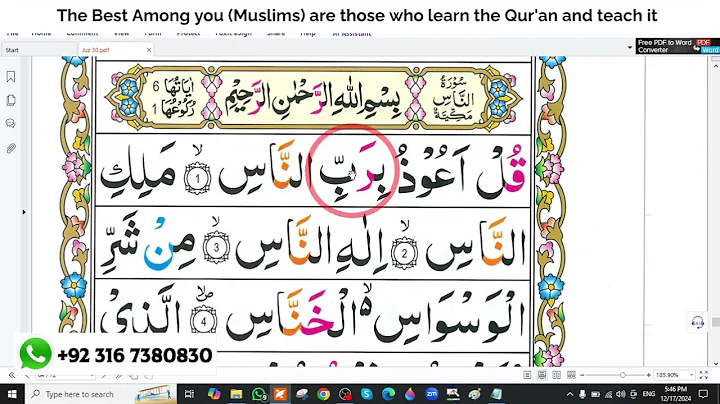 The Best Among you (Muslims) are those who learn the Qur'an and teach it
AI Assistant
Free PDF to Word Converter
PDF
Word
Start
Juz 30.pdf
سُوْرَةُ النَّاسِ مَكِّيَّةٌ
بِسْمِ اللهِ الرَّحْمٰنِ الرَّحِيْمِ
اٰيَاتُهَا 6
رُكُوْعُهَا 1
قُلْ اَعُوْذُ بِرَبِّ النَّاسِ ۙ 1 مَلِكِ
النَّاسِ ۙ 2 اِلٰهِ النَّاسِ ۙ 3 مِنْ شَرِّ
الْوَسْوَاسِ ۙ۬ الْخَنَّاسِ ۪ۙ 4 الَّذِيْ
+92 316 7380830
185.90%
Type here to search
ENG
5:46 PM
12/17/2024